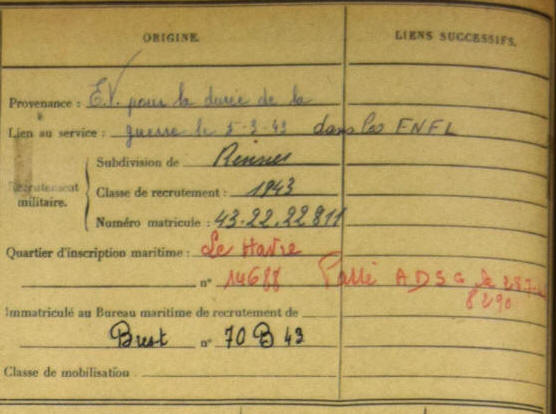 ORIGINE.
LIENS SUCCESSIFS.
Provenance : E.V. pour la durée de la
Lien au service : guerre le 5-3-43 dans les FNFL
Subdivision de Rennes
Recrutement militaire.
Classe de recrutement : 1943
Numéro matricule : 43.22.22811
Quartier d'inscription maritime : Le Havre
n° 14688 Passé A D S G le
8290
Immatriculé au Bureau maritime de recrutement de
Brest n° 70 B 43
Classe de mobilisation